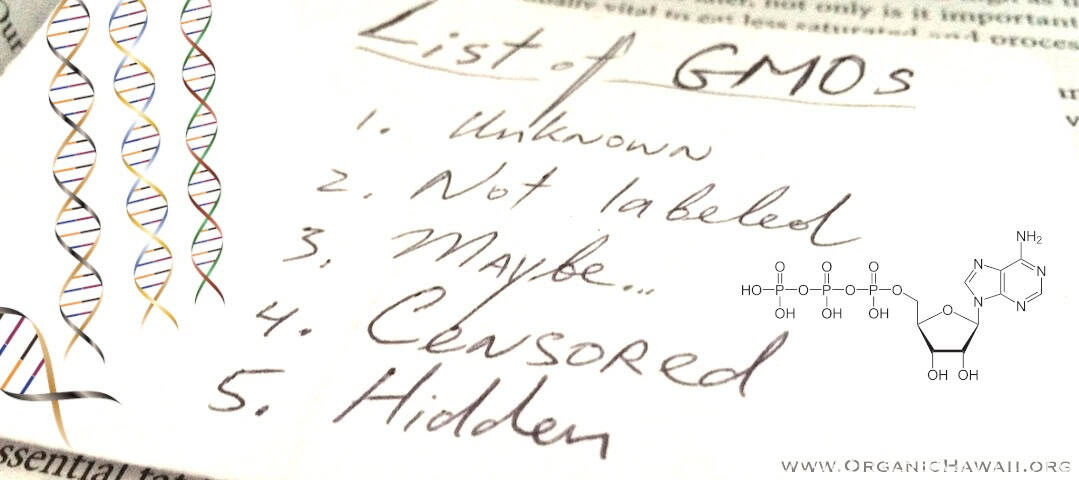 not only is it important
vital to eat less saturated and
Our
List of GMOs
1. Unknown
2. Not labeled
3. Maybe...
4. Censored
5. Hidden
NH₂
N N
O O O
HO P O P O P O
OH OH OH
O N N
OH OH
ssential
www.OrganicHawaii.org